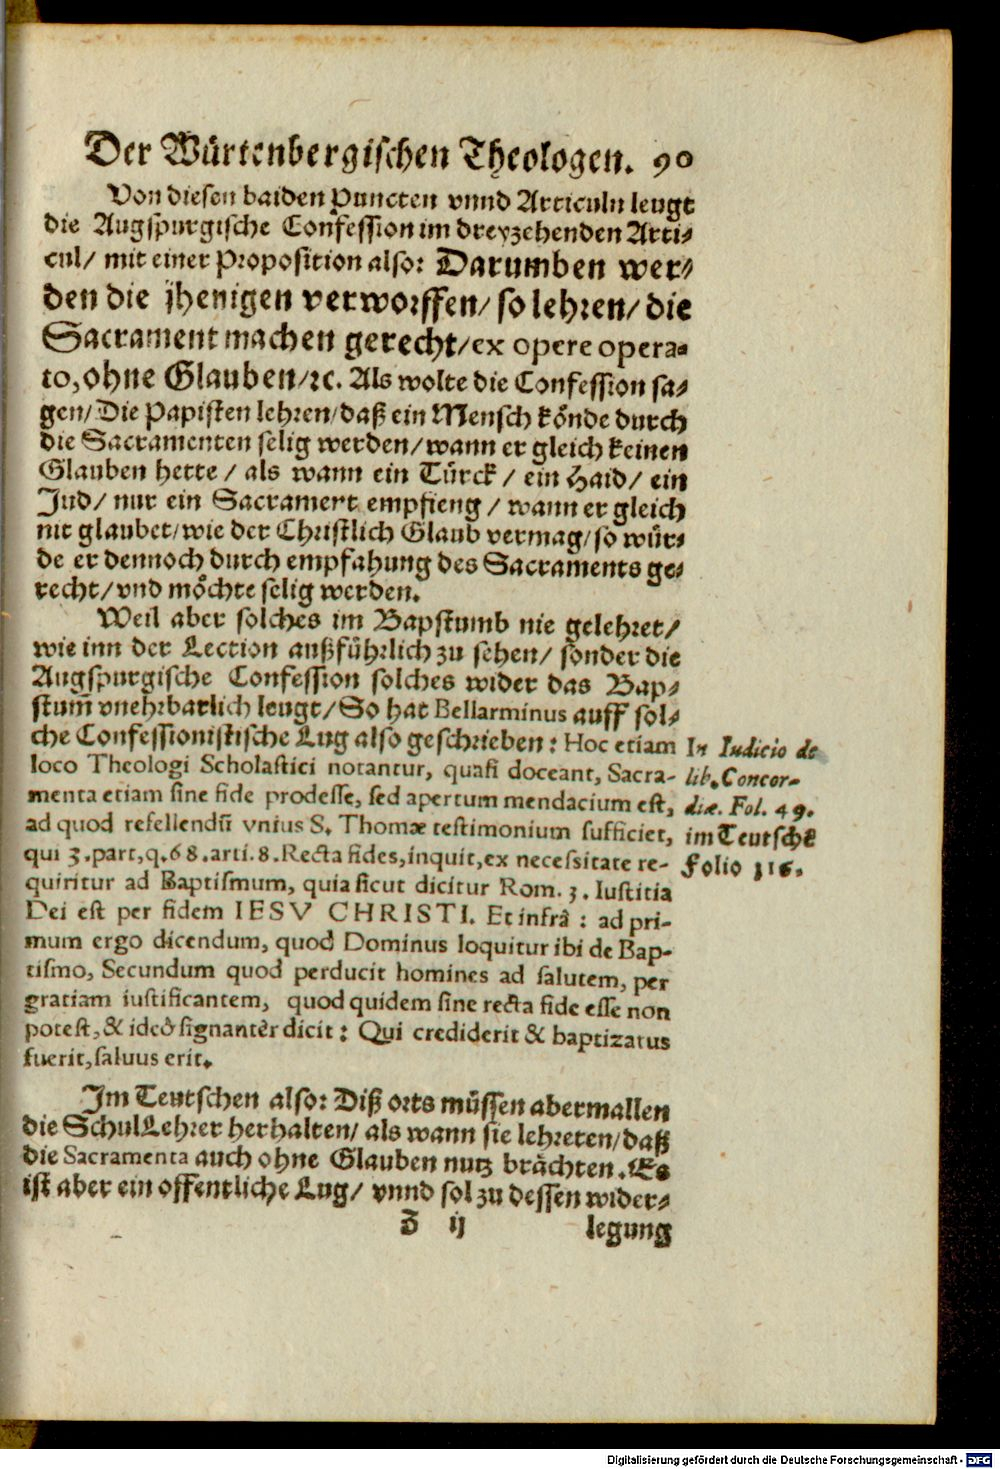 Der Würtenbergischen Theologen. 90
Von diesen baiden Puncten vnnd Articuln leugt
die Augspurgische Confession im dreyzehenden Arti⸗
cul/ mit einer Proposition also: Darumben wer⸗
den die jhenigen verworffen/ so lehren/ die
Sacrament machen gerecht/ex opere opera-
to, ohne Glauben/ꝛc. Als wolte die Confession sa⸗
gen/ Die Papisten lehren/ daß ein Mensch könde durch
die Sacramenten selig werden/ wann er gleich keinen
Glauben hette / als wann ein Türck / ein Haid/ ein
Jud/ nur ein Sacrament empfieng / wann er gleich
nit glaubet/ wie der Christlich Glaub vermag/ so wür⸗
de er dennoch durch empfahung des Sacraments ge⸗
recht/ vnd möchte selig werden.
Weil aber solches im Bapstumb nie gelehret/
wie inn der Lection außführlich zu sehen/ sonder die
Augspurgische Confession solches wider das Bap⸗
stum̃ vnehrbarlich leugt/ So hat Bellarminus auff sol⸗
che Confessionistische Lug also geschrieben: Hoc etiam
loco Theologi Scholastici notantur, quasi doceant, Sacra-
menta etiam sine fide prodesse, sed apertum mendacium est,
ad quod refellendũ vnius S. Thomæ testimonium sufficiet,
qui 3. part, q. 68. arti. 8. Recta fides, inquit, ex necessitate re-
quiritur ad Baptismum, quia sicut dicitur Rom. 3. Iustitia
Dei est per fidem IESV CHRISTI. Et infrâ: ad pri-
mum ergo dicendum, quod Dominus loquitur ibi de Bap-
tismo, Secundum quod perducit homines ad salutem, per
gratiam iustificantem, quod quidem sine recta fide esse non
potest, & ideò signantèr dicit: Qui crediderit & baptizatus
fuerit, saluus erit.
In Iudicio de
lib. Concor-
diæ. Fol. 49.
im Teutschē
Folio 116.
Im Teutschen also: Diß orts müssen abermallen
die SchulLehrer herhalten/ als wann sie lehreten/ daß
die Sacramenta auch ohne Glauben nutz brächten. Es
ist aber ein offentliche Lug/ vnnd sol zu dessen wider⸗
Z ij legung
Digitalisierung gefördert durch die Deutsche Forschungsgemeinschaft - DFG